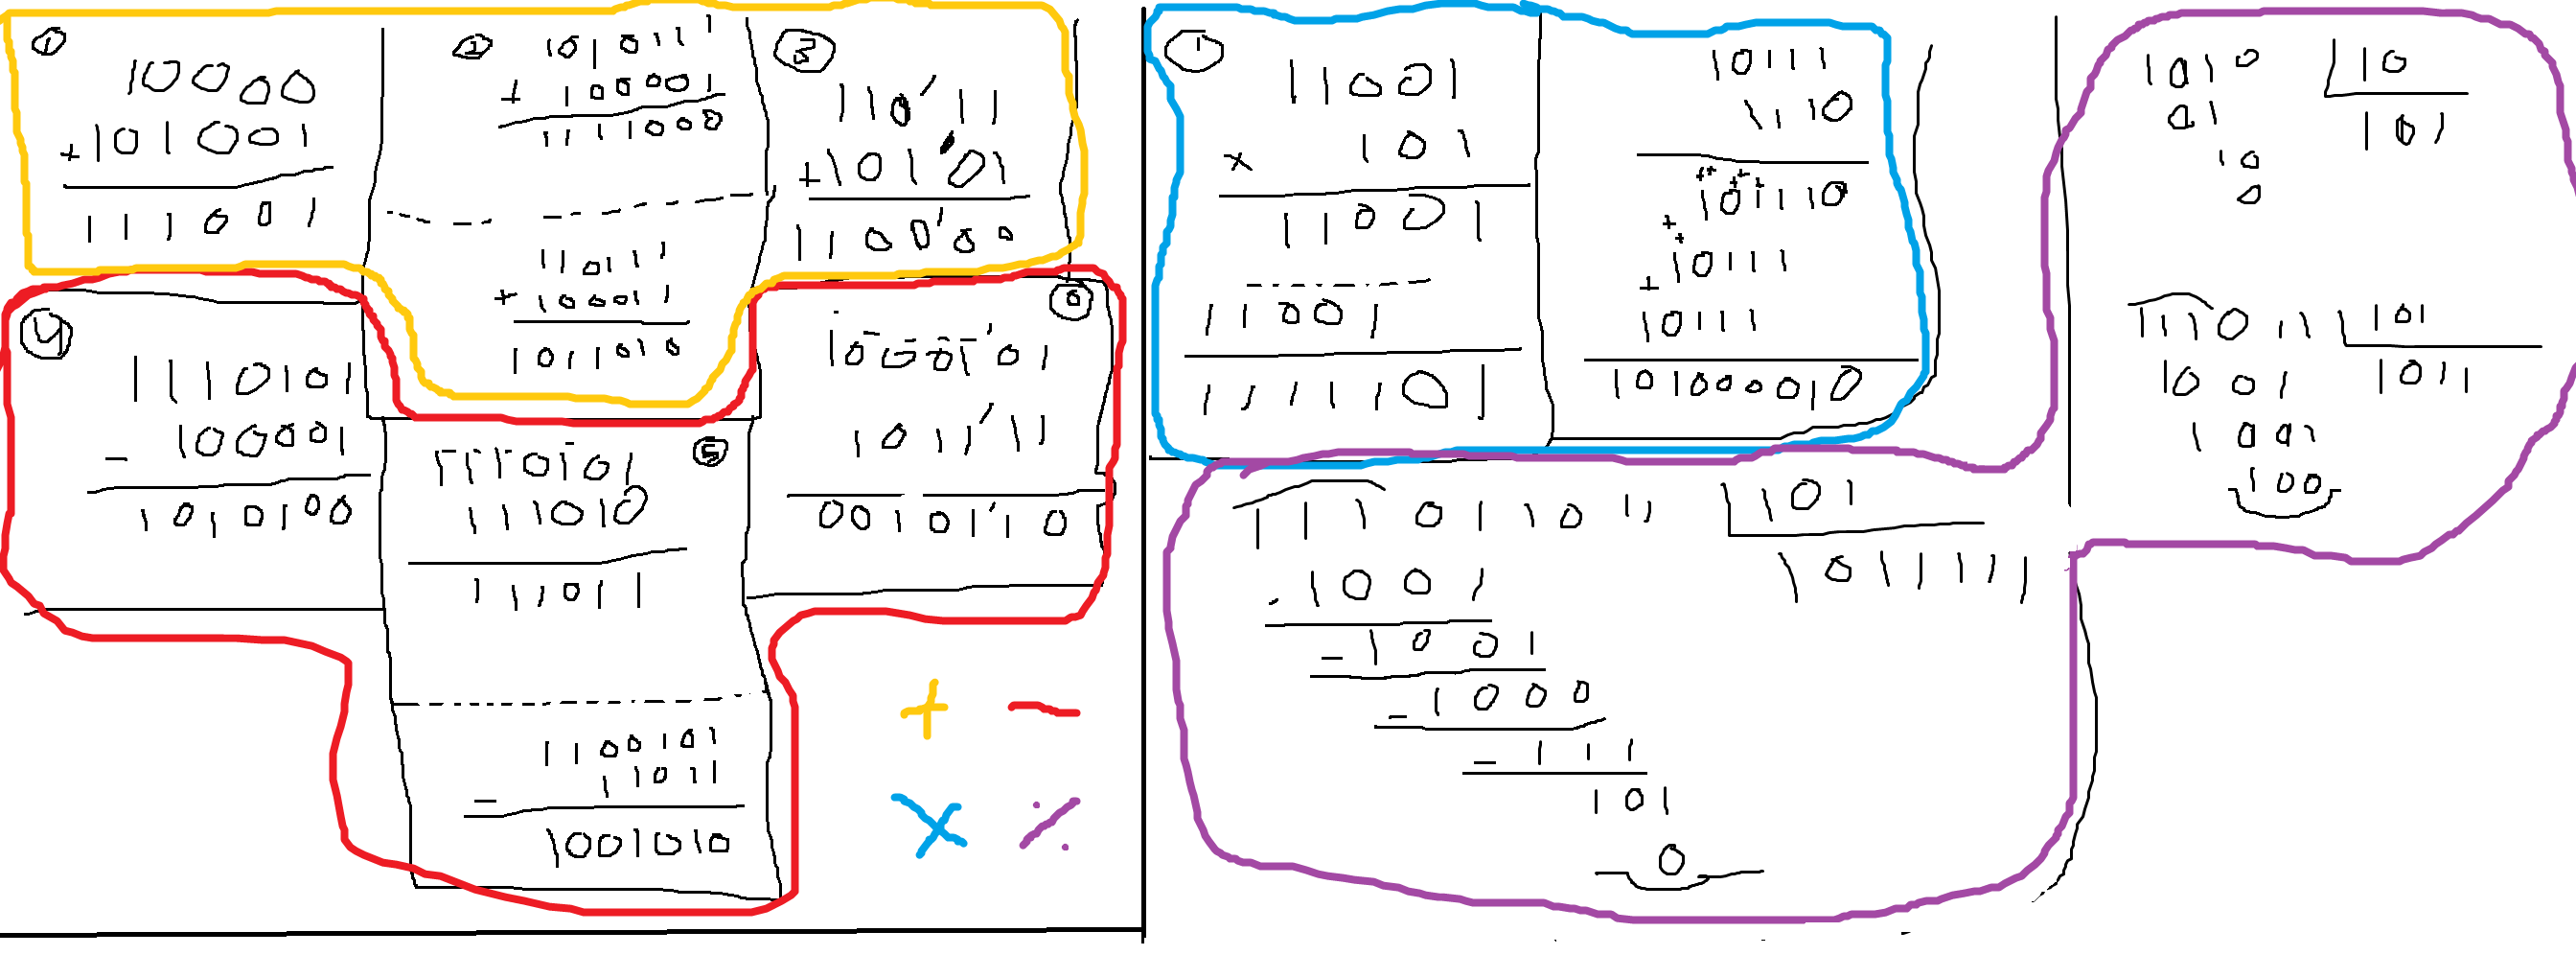 1
10000
+101001
111001
2
1010111
+ 100001
1111000
110111
+ 100011
1011010
3
110'11
+101'01
1100'00
4
1110101
- 100001
1010100
5
1110101
111010
111011
1100101
- 11011
1001010
6
1000101
101111
00101110
+ -
× ÷
1
11001
× 101
11001
11001
1111101
10111
1110
101110
+ 10111
10111
101000010
1010 10
01 101
10
0
111011 101
1001 1011
1001
100
11101011 101
1001 101111
- 1001
- 1000
- 111
101
0